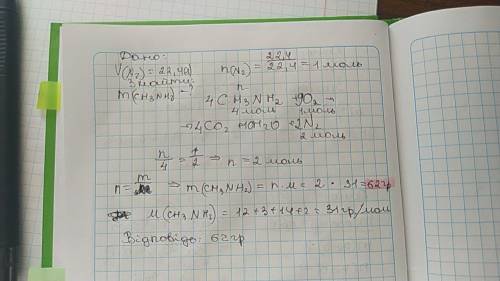 Дано:
V(N₂) = 22,4л
Знайти:
m(CH₃NH₂) - ?
n(N₂) = 22,4 / 22,4 = 1 моль
n
4CH₃NH₂ + 9O₂ →
4 моль
→ 4CO₂ + 10H₂O + 2N₂
2 моль
n/4 = 1/2 ⇒ n = 2 моль
n = m/ ⇒ m(CH₃NH₂) = n · M = 2 · 31 = 62гр
M(CH₃NH₂) = 12+3+14+2 = 31гр/моль
Відповідь: 62гр